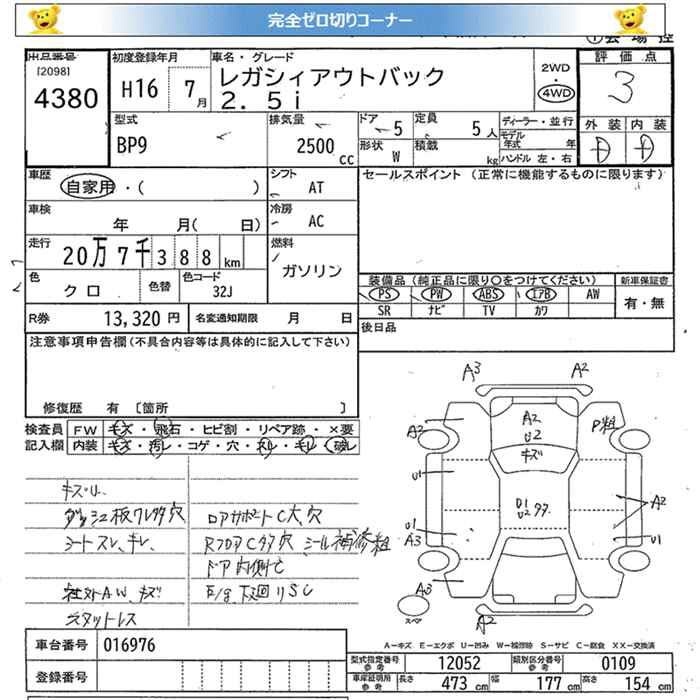 完全ゼロ切りコーナー
出品番号
[2098]
4380
初度登録年月
H16 7月
車名・グレード
レガシィアウトバック
2.5i
2WD
4WD
評価点
3
外装 内装
D D
型式
BP9
排気量
2500 CC
ドア 5
定員 5人
形状 W
積載 kg
ディーラー・並行
モデル年式 年
ハンドル 左・右
車歴
自家用・( )
シフト
AT
車検
年 月( 日)
冷房
AC
走行
20万7千388km
燃料
ガソリン
色
クロ
色替
色コード
32J
R券 13,320円
名変通知期限 月 日
セールスポイント (正常に機能するものに限ります)
装備品 (純正品に限り○をつけてください)
新車保証書
PS PW ABS エアB AW
SR ナビ TV カワ
有・無
後日品
注意事項申告欄(不具合内容等は具体的に記入して下さい)
修復歴 有 [箇所 ]
検査員記入欄
FW キズ・飛石・ヒビ割・リペア跡・×要
内装 キズ・汚レ・コゲ・穴・スレ・キレ・破レ
ダッシュ板ワレ多穴
シートスレ、キレ
社外AW、キズ
スタットレス
ロアサポートC大、穴
RフロアC多穴 シール補修粗
ドア内側セ
E/g下廻リSC
A3 A2
A2
A2
U2
キズ
P粗
U1
U1
U2
A2
U1
A3
U1
A3
A2
スペア
A-キズ E-エクボ U-凹み W-補修跡 S-サビ C-腐食 XX-交換済
車台番号 016976
登録番号
型式指定番号 参考 12052
類別区分番号 参考 0109
車庫証明用 参考 長さ 473cm 幅 177cm 高さ 154cm